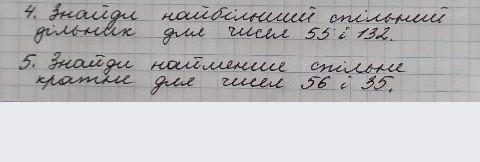 4. Знайди найбільший спільний
дільник для чисел 55 і 132.
5. Знайди найменше спільне
кратне для чисел 56 і 35.